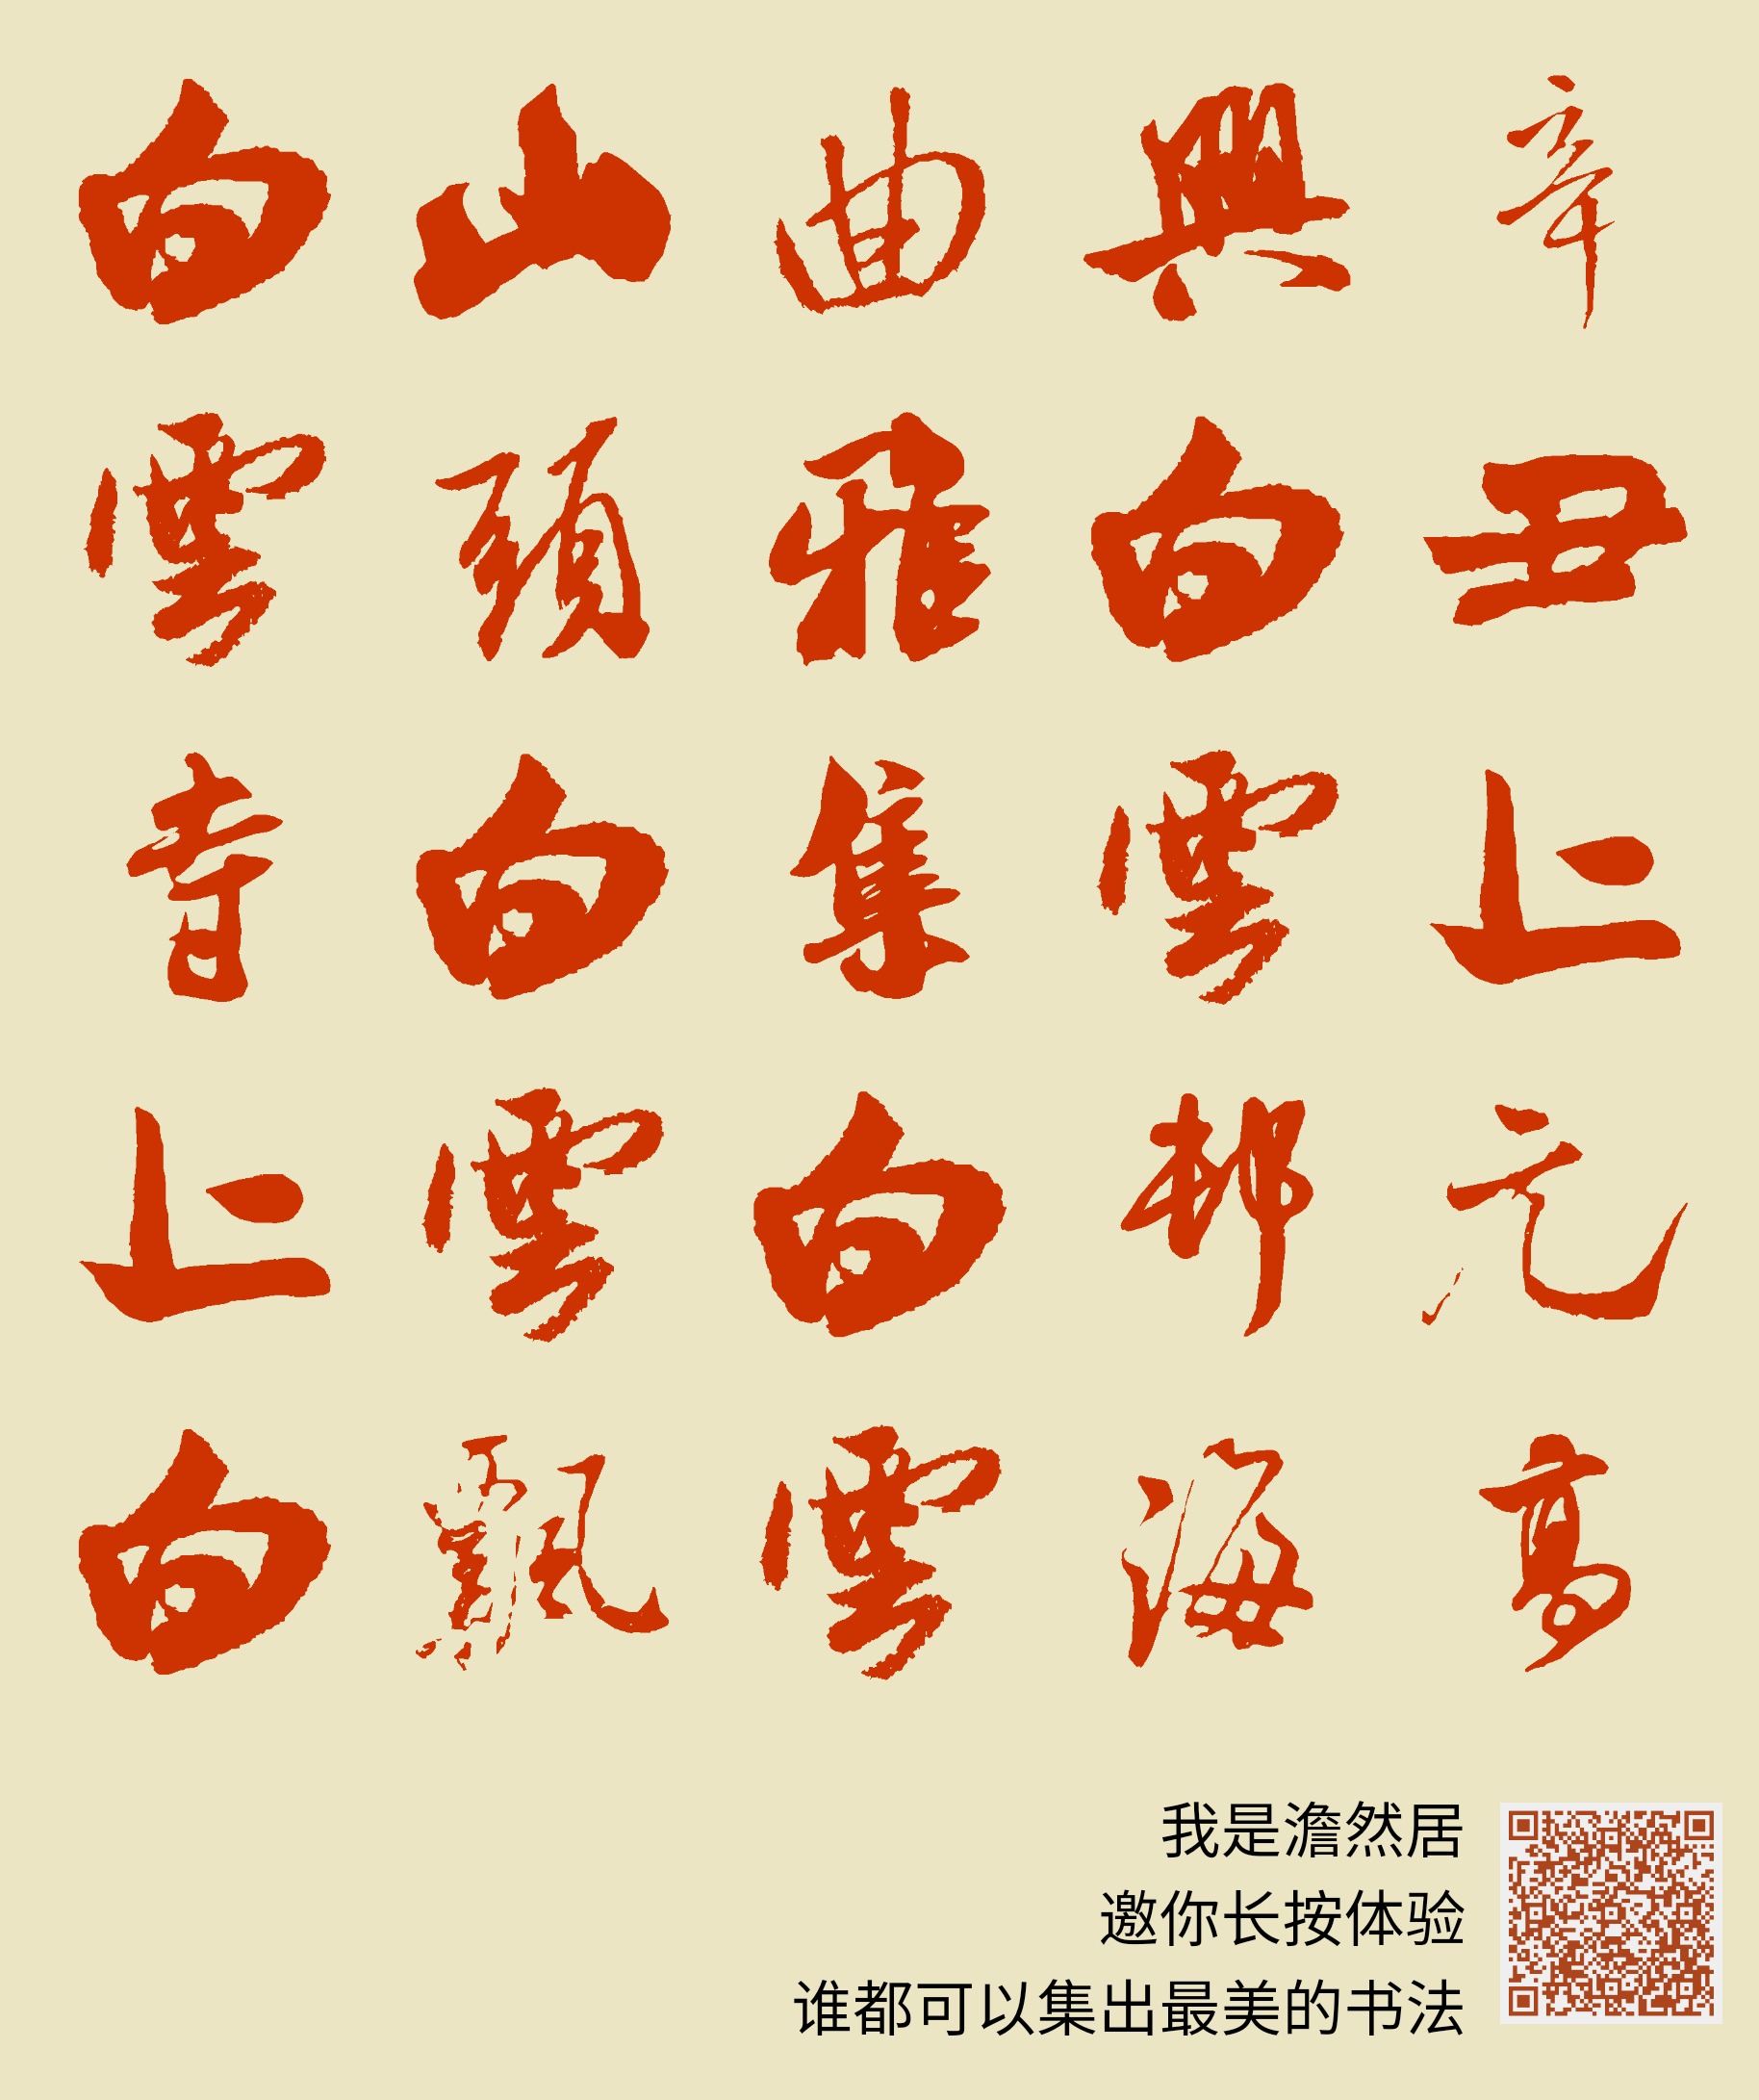 辛丑上元高
興白雲邨海
曲雅集白雲
山頭白雲飄
白雲寺上白
我是澹然居
邀你长按体验
谁都可以集出最美的书法